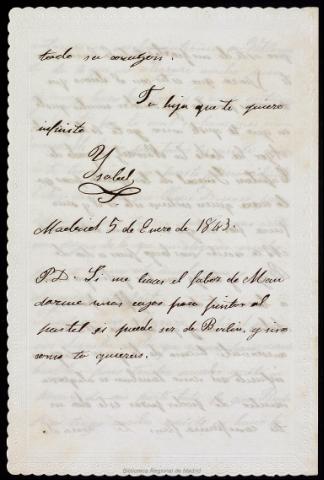 todo su corazon.
Tu hija que te quiere
infinito
Ysabel
Madrid 5 de Enero de 1843.
P.D. Si me haces el fabor de Man
darme unas cajas para pintar al
pastel, si puede ser de Berlin, y sino
como tu quieras.
Biblioteca Regional de Madrid